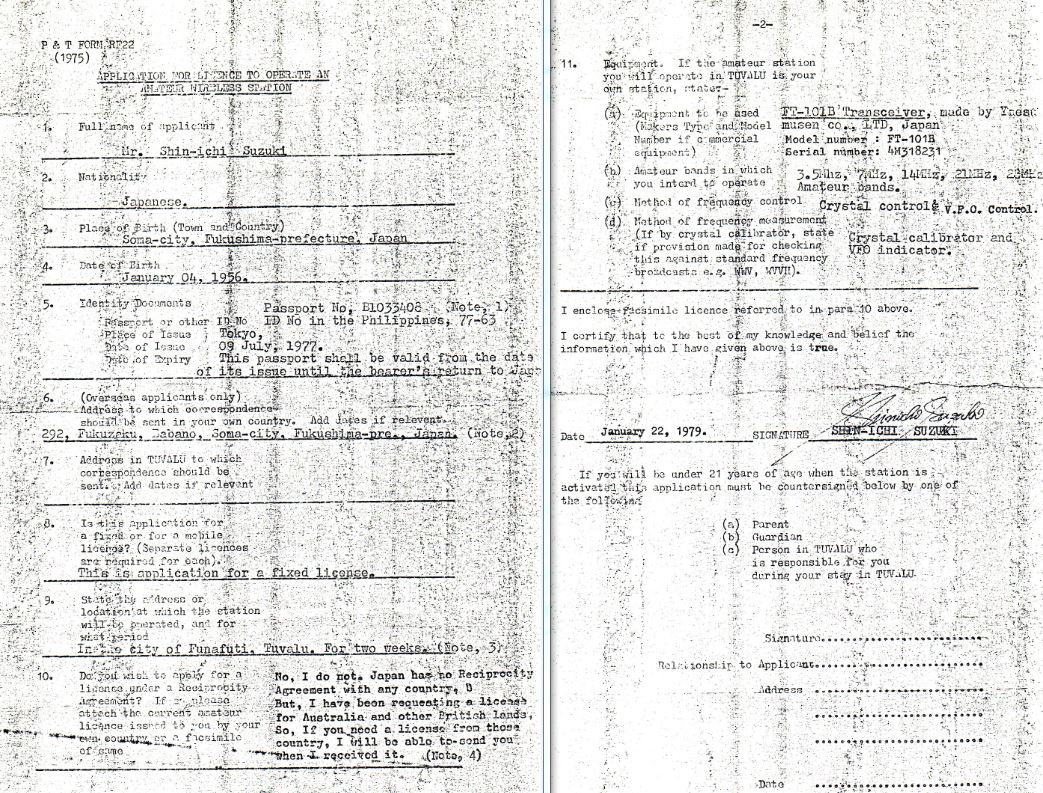 P & T FORM RF22
(1975)
APPLICATION FOR LICENCE TO OPERATE AN
AMATEUR WIRELESS STATION
1. Full name of applicant
Mr. Shin-ichi Suzuki
2. Nationality
Japanese.
3. Place of Birth (Town and Country)
Soma-city, Fukushima-prefecture, Japan
4. Date of Birth
January 04, 1956.
5. Identity Documents
Passport No, E1033408 (Note, 1)
Passport or other ID No ID No in the Philippines, 77-63
Place of Issue Tokyo,
Date of Issue 09 July, 1977.
Date of Expiry This passport shall be valid from the date
of its issue until the bearer's return to Jap
6. (Overseas applicants only)
Address to which correspondence
should be sent in your own country. Add dates if relevant.
292, Fukuzeku, Babano, Soma-city, Fukushima-pre., Japan. (Note,2)
7. Address in TUVALU to which
correspondence should be
sent. Add dates if relevant
8. Is this application for
a fixed or for a mobile
licence? (Separate licences
are required for each).
This is application for a fixed license.
9. State the address or
location at which the station
will be operated, and for
what period
In the city of Funafuti, Tuvalu. For two weeks. (Note, 3)
10. Do you wish to apply for a
license under a Reciprocity
Agreement? If so please
attach the current amateur
licence issued to you by your
own country or a facsimile
of same
No, I do not. Japan has no Reciprocity
Agreement with any country,
But, I have been requesting a license
for Australia and other British lands,
So, If you need a license from those
country, I will be able to send you
when I received it. (Note, 4)
-2-
11. Equipment. If the amateur station
you will operate in TUVALU is your
own station, state:-
(a) Equipment to be used
(Makers Type and Model
Number if commercial
equipment)
FT-101B Transceiver, made by Yaesu
musen co., LTD, Japan
Model number : FT-101B
Serial number: 4M318231
(b) Amateur bands in which
you intend to operate
3.5Mhz, 7MHz, 14MHz, 21MHz, 28MHz
Amateur bands.
(c) Method of frequency control Crystal control& V.F.O. Control.
(d) Method of frequency measurement
(If by crystal calibrator, state
if provision made for checking
this against standard frequency
broadcasts e.g. WWV, WVVH).
Crystal calibrator and
VFO indicator.
I enclose facsimile licence referred to in para 10 above.
I certify that to the best of my knowledge and belief the
information which I have given above is true.
Shinichi Suzuki
Date January 22, 1979. SIGNATURE SHIN-ICHI SUZUKI
If you will be under 21 years of age when the station is
activated this application must be countersigned below by one of
the following
(a) Parent
(b) Guardian
(c) Person in TUVALU who
is responsible for you
during your stay in TUVALU
Signature
Relationship to Applicant
Address
Date